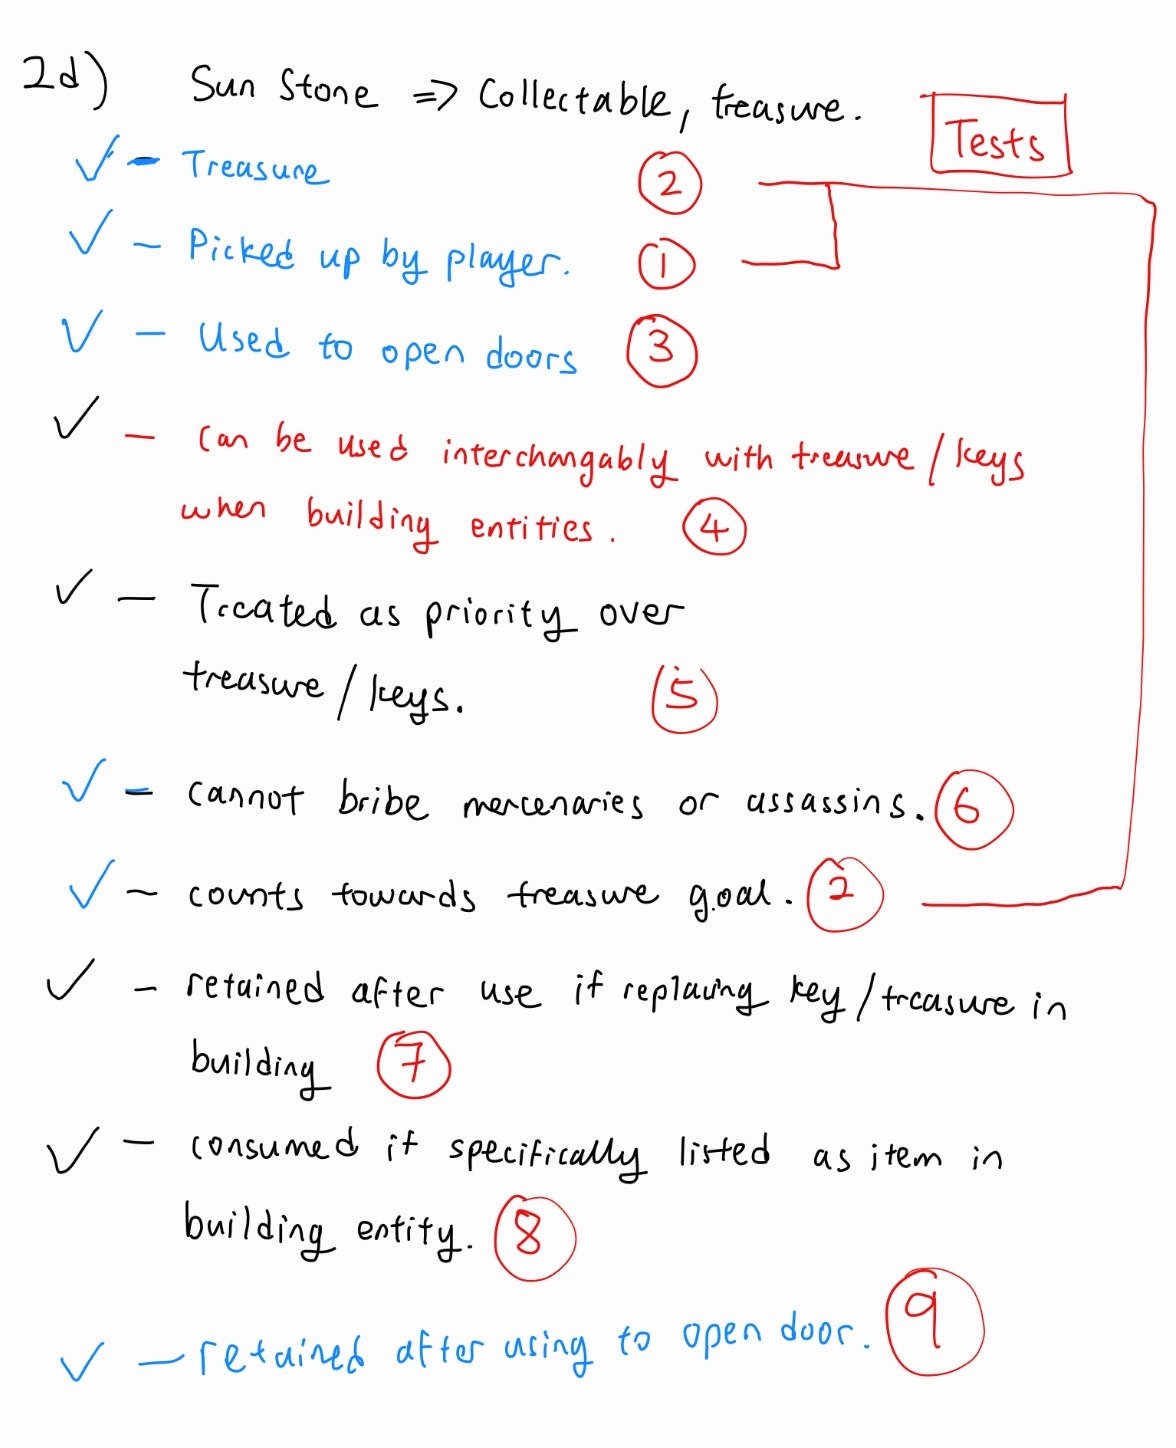 2d) Sun Stone => Collectable, treasure.
Tests
✓ - Treasure 2
✓ - Picked up by player. 1
✓ - Used to open doors 3
✓ - Can be used interchangably with treasure / keys
when building entities. 4
✓ - Treated as priority over
treasure / keys. 5
✓ - cannot bribe mercenaries or assassins. 6
✓ - counts towards treasure goal. 2
✓ - retained after use if replacing key / treasure in
building 7
✓ - consumed if specifically listed as item in
building entity. 8
✓ - retained after using to open door. 9